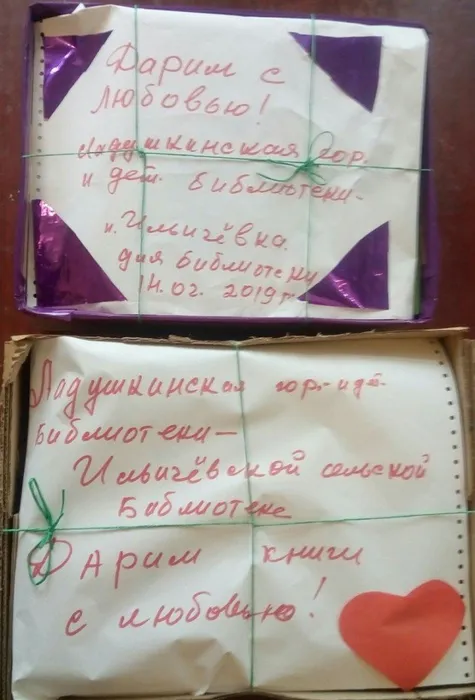 Дарим с
любовью!
Ладушкинская гор.
и дет. библиотеки-
п. Ильичёвка
для библиотеки
14.02. 2019 г.
Ладушкинская гор- и дет-
библиотеки-
Ильичёвской сельской
Библиотеке
Дарим книги
с любовью!